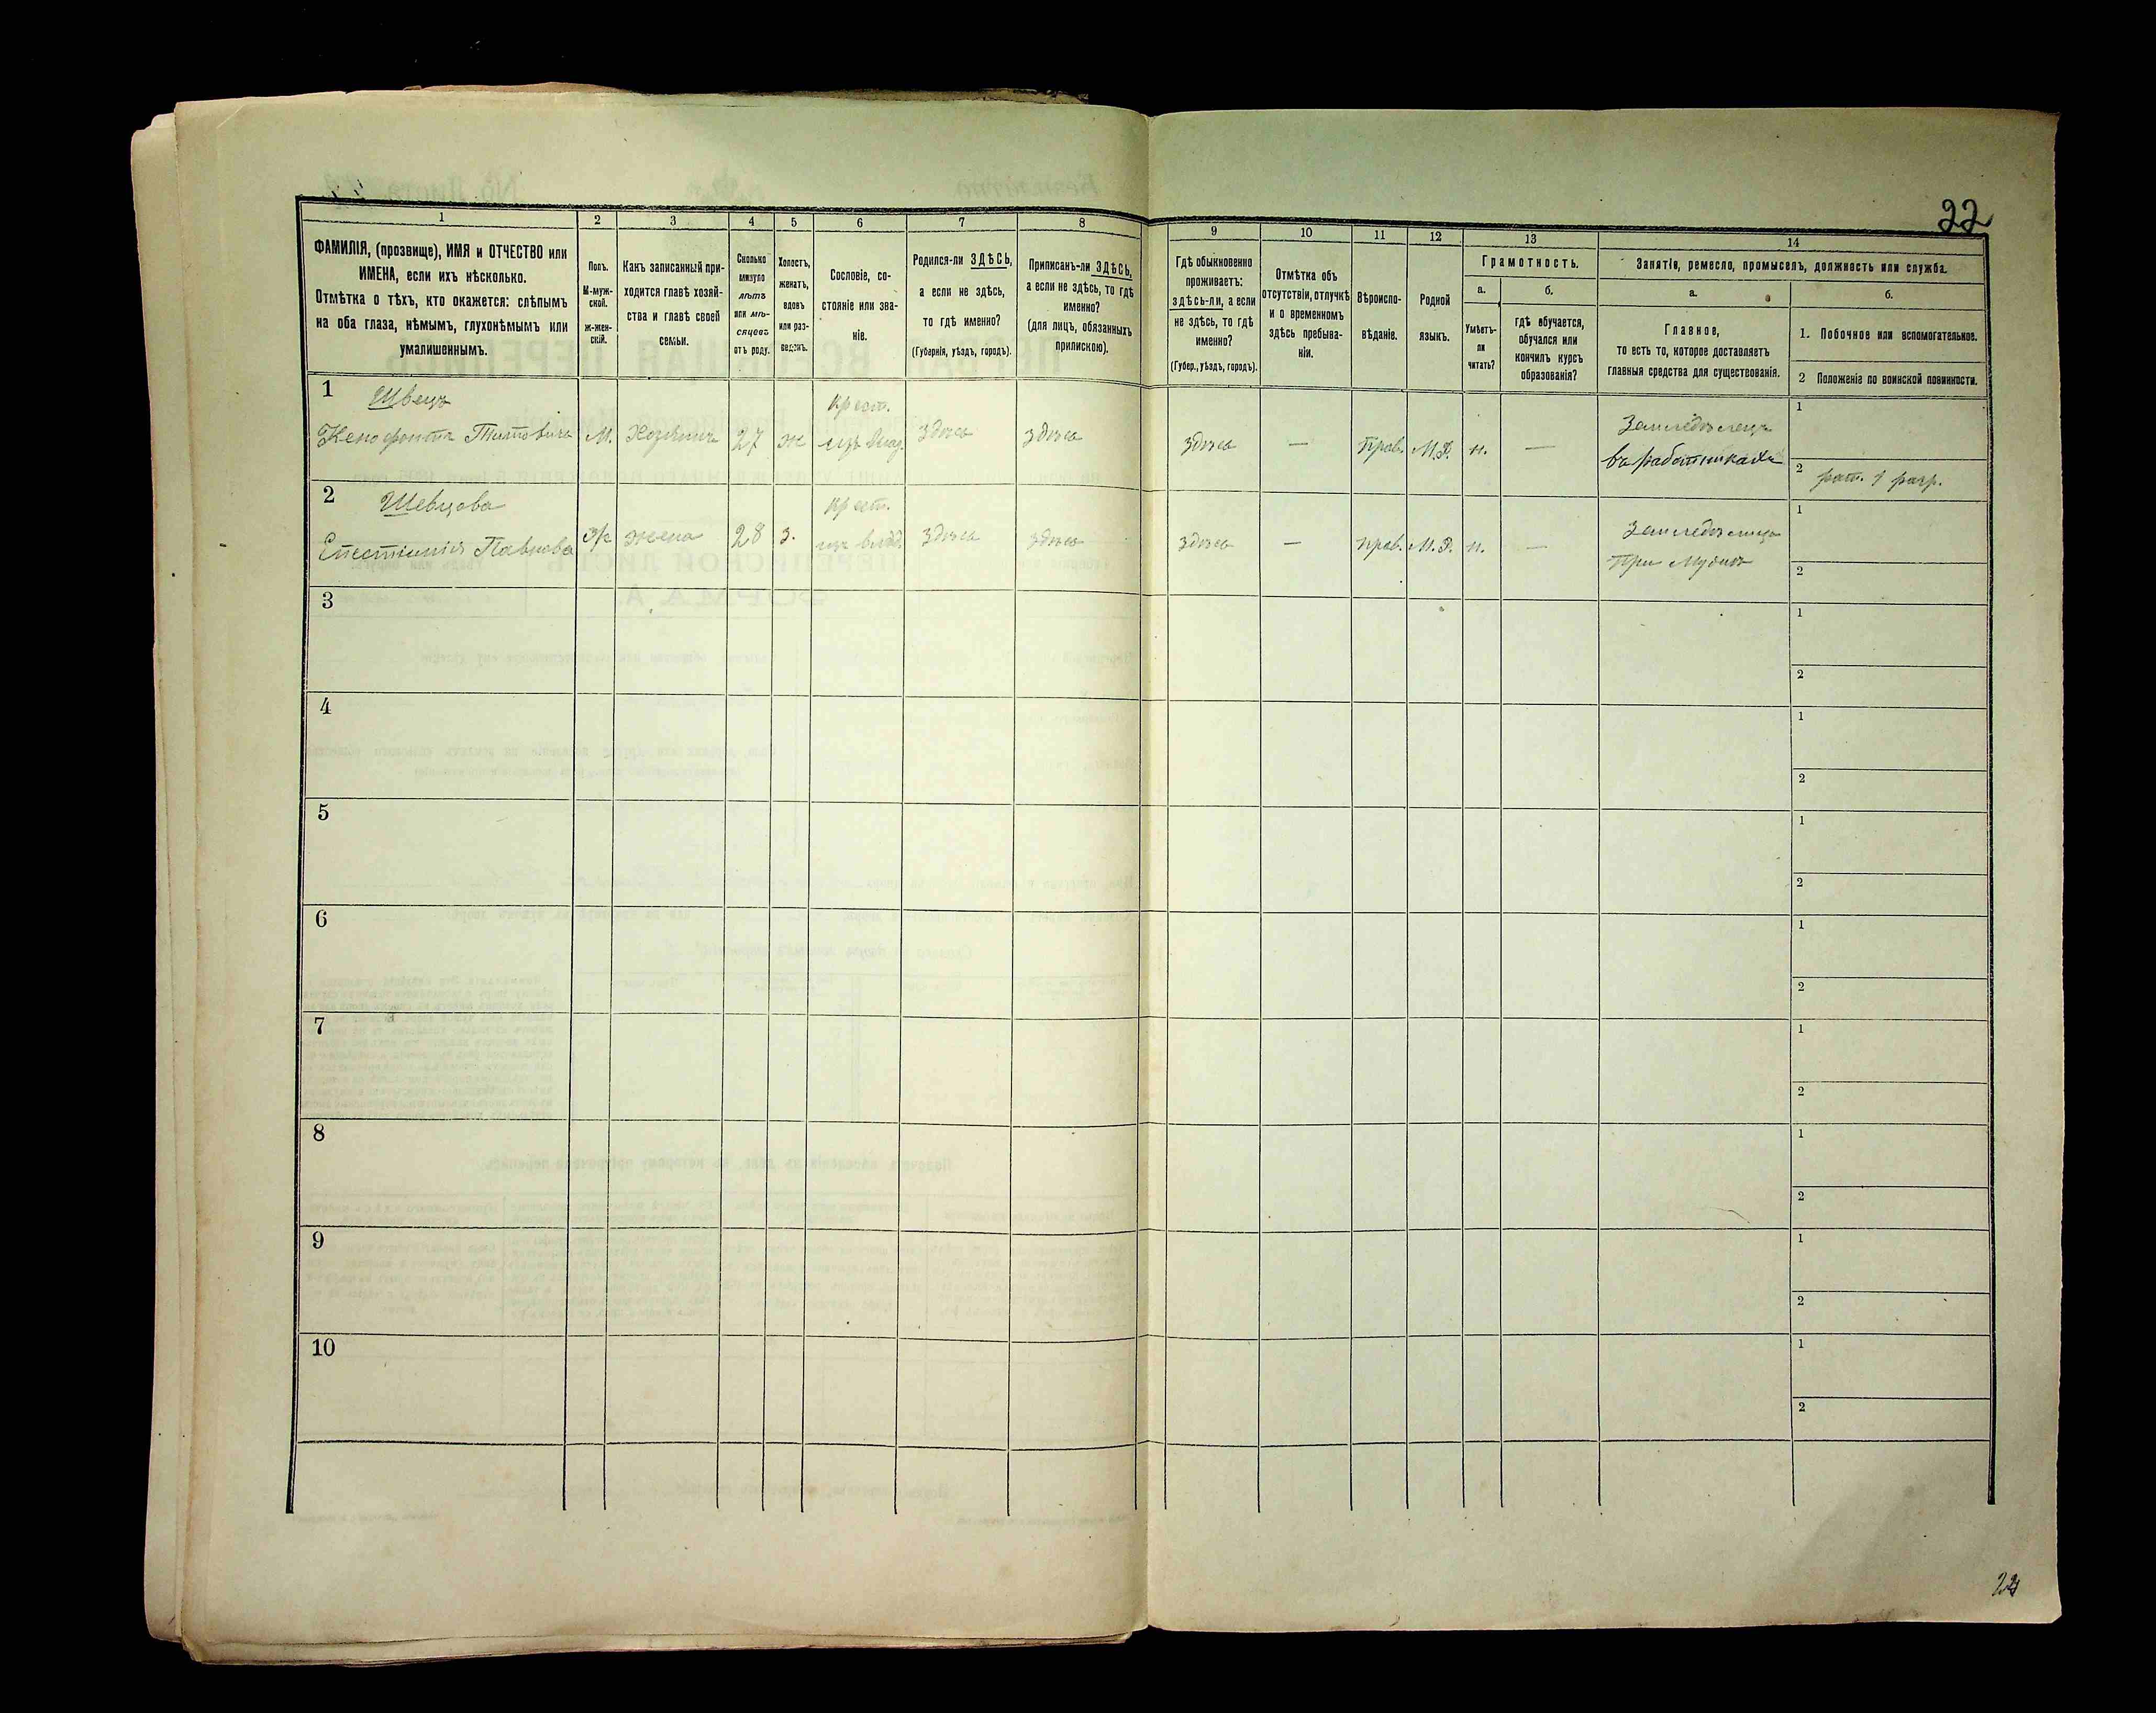 22
1
2
3
4
5
6
7
8
9
10
11
12
13
14
ФАМИЛІЯ, (прозвище), ИМЯ и ОТЧЕСТВО или
ИМЕНА, если ихъ нѣсколько.
Отмѣтка о тѣхъ, кто окажется: слѣпымъ
на оба глаза, нѣмымъ, глухонѣмымъ или
умалишеннымъ.
Полъ.
М-муж-
ской.
ж-жен-
скій.
Какъ записанный при-
ходится главѣ хозяй-
ства и главѣ своей
семьи.
Сколько
минуло
лѣтъ
или мѣ-
сяцевъ
отъ роду.
Холостъ,
женатъ,
вдовъ
или раз-
веденъ.
Сословіе, со-
стояніе или зва-
ніе.
Родился-ли ЗДѢСЬ,
а если не здѣсь,
то гдѣ именно?
(Губернія, уѣздъ, городъ).
Приписанъ-ли ЗДѢСЬ,
а если не здѣсь, то гдѣ
именно?
(для лицъ, обязанныхъ
припискою).
Гдѣ обыкновенно
проживаетъ:
здѣсь-ли, а если
не здѣсь, то гдѣ
именно?
(Губер., уѣздъ, городъ).
Отмѣтка объ
отсутствіи, отлучкѣ
и о временномъ
здѣсь пребыва-
ніи.
Вѣроиспо-
вѣданіе.
Родной
языкъ.
Грамотность.
а.
Умѣетъ-
ли
читать?
б.
гдѣ обучается,
обучался или
кончилъ курсъ
образованія?
Занятіе, ремесло, промыселъ, должность или служба.
а.
Главное,
то есть то, которое доставляетъ
главныя средства для существованія.
б.
1. Побочное или вспомогательное.
2 Положеніе по воинской повинности.
1
Швецъ
Ксенофонтъ Титовичъ
М.
Хозяинъ
27
ж
крест.
изъ влад.
здѣсь
здѣсь
здѣсь
—
Прав.
М.Р.
н.
—
Земледѣлецъ
въ работникахъ
1
2 рат. 1 разр.
2
Шевцова
Павлова
ж
жена
28
з.
крест.
изъ влад.
здѣсь
здѣсь
здѣсь
—
прав.
М.Р.
н.
—
При мужѣ
1
2
3
1
2
4
1
2
5
1
2
6
1
2
7
1
2
8
1
2
9
1
2
10
1
2